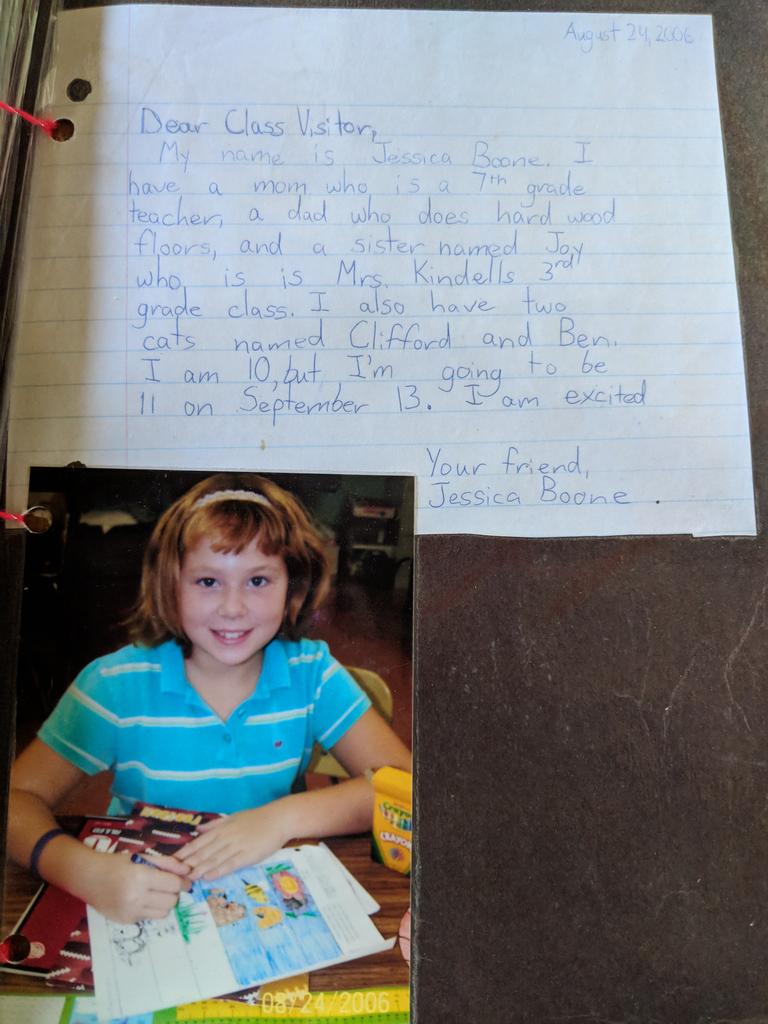 August 24, 2006
Dear Class Visitor,
My name is Jessica Boone. I
have a mom who is a 7th grade
teacher, a dad who does hard wood
floors, and a sister named Joy
who is is Mrs. Kindells 3rd
grade class. I also have two
cats named Clifford and Ben.
I am 10, but I'm going to be
11 on September 13. I am excited
Your friend,
Jessica Boone.
08/24/2006